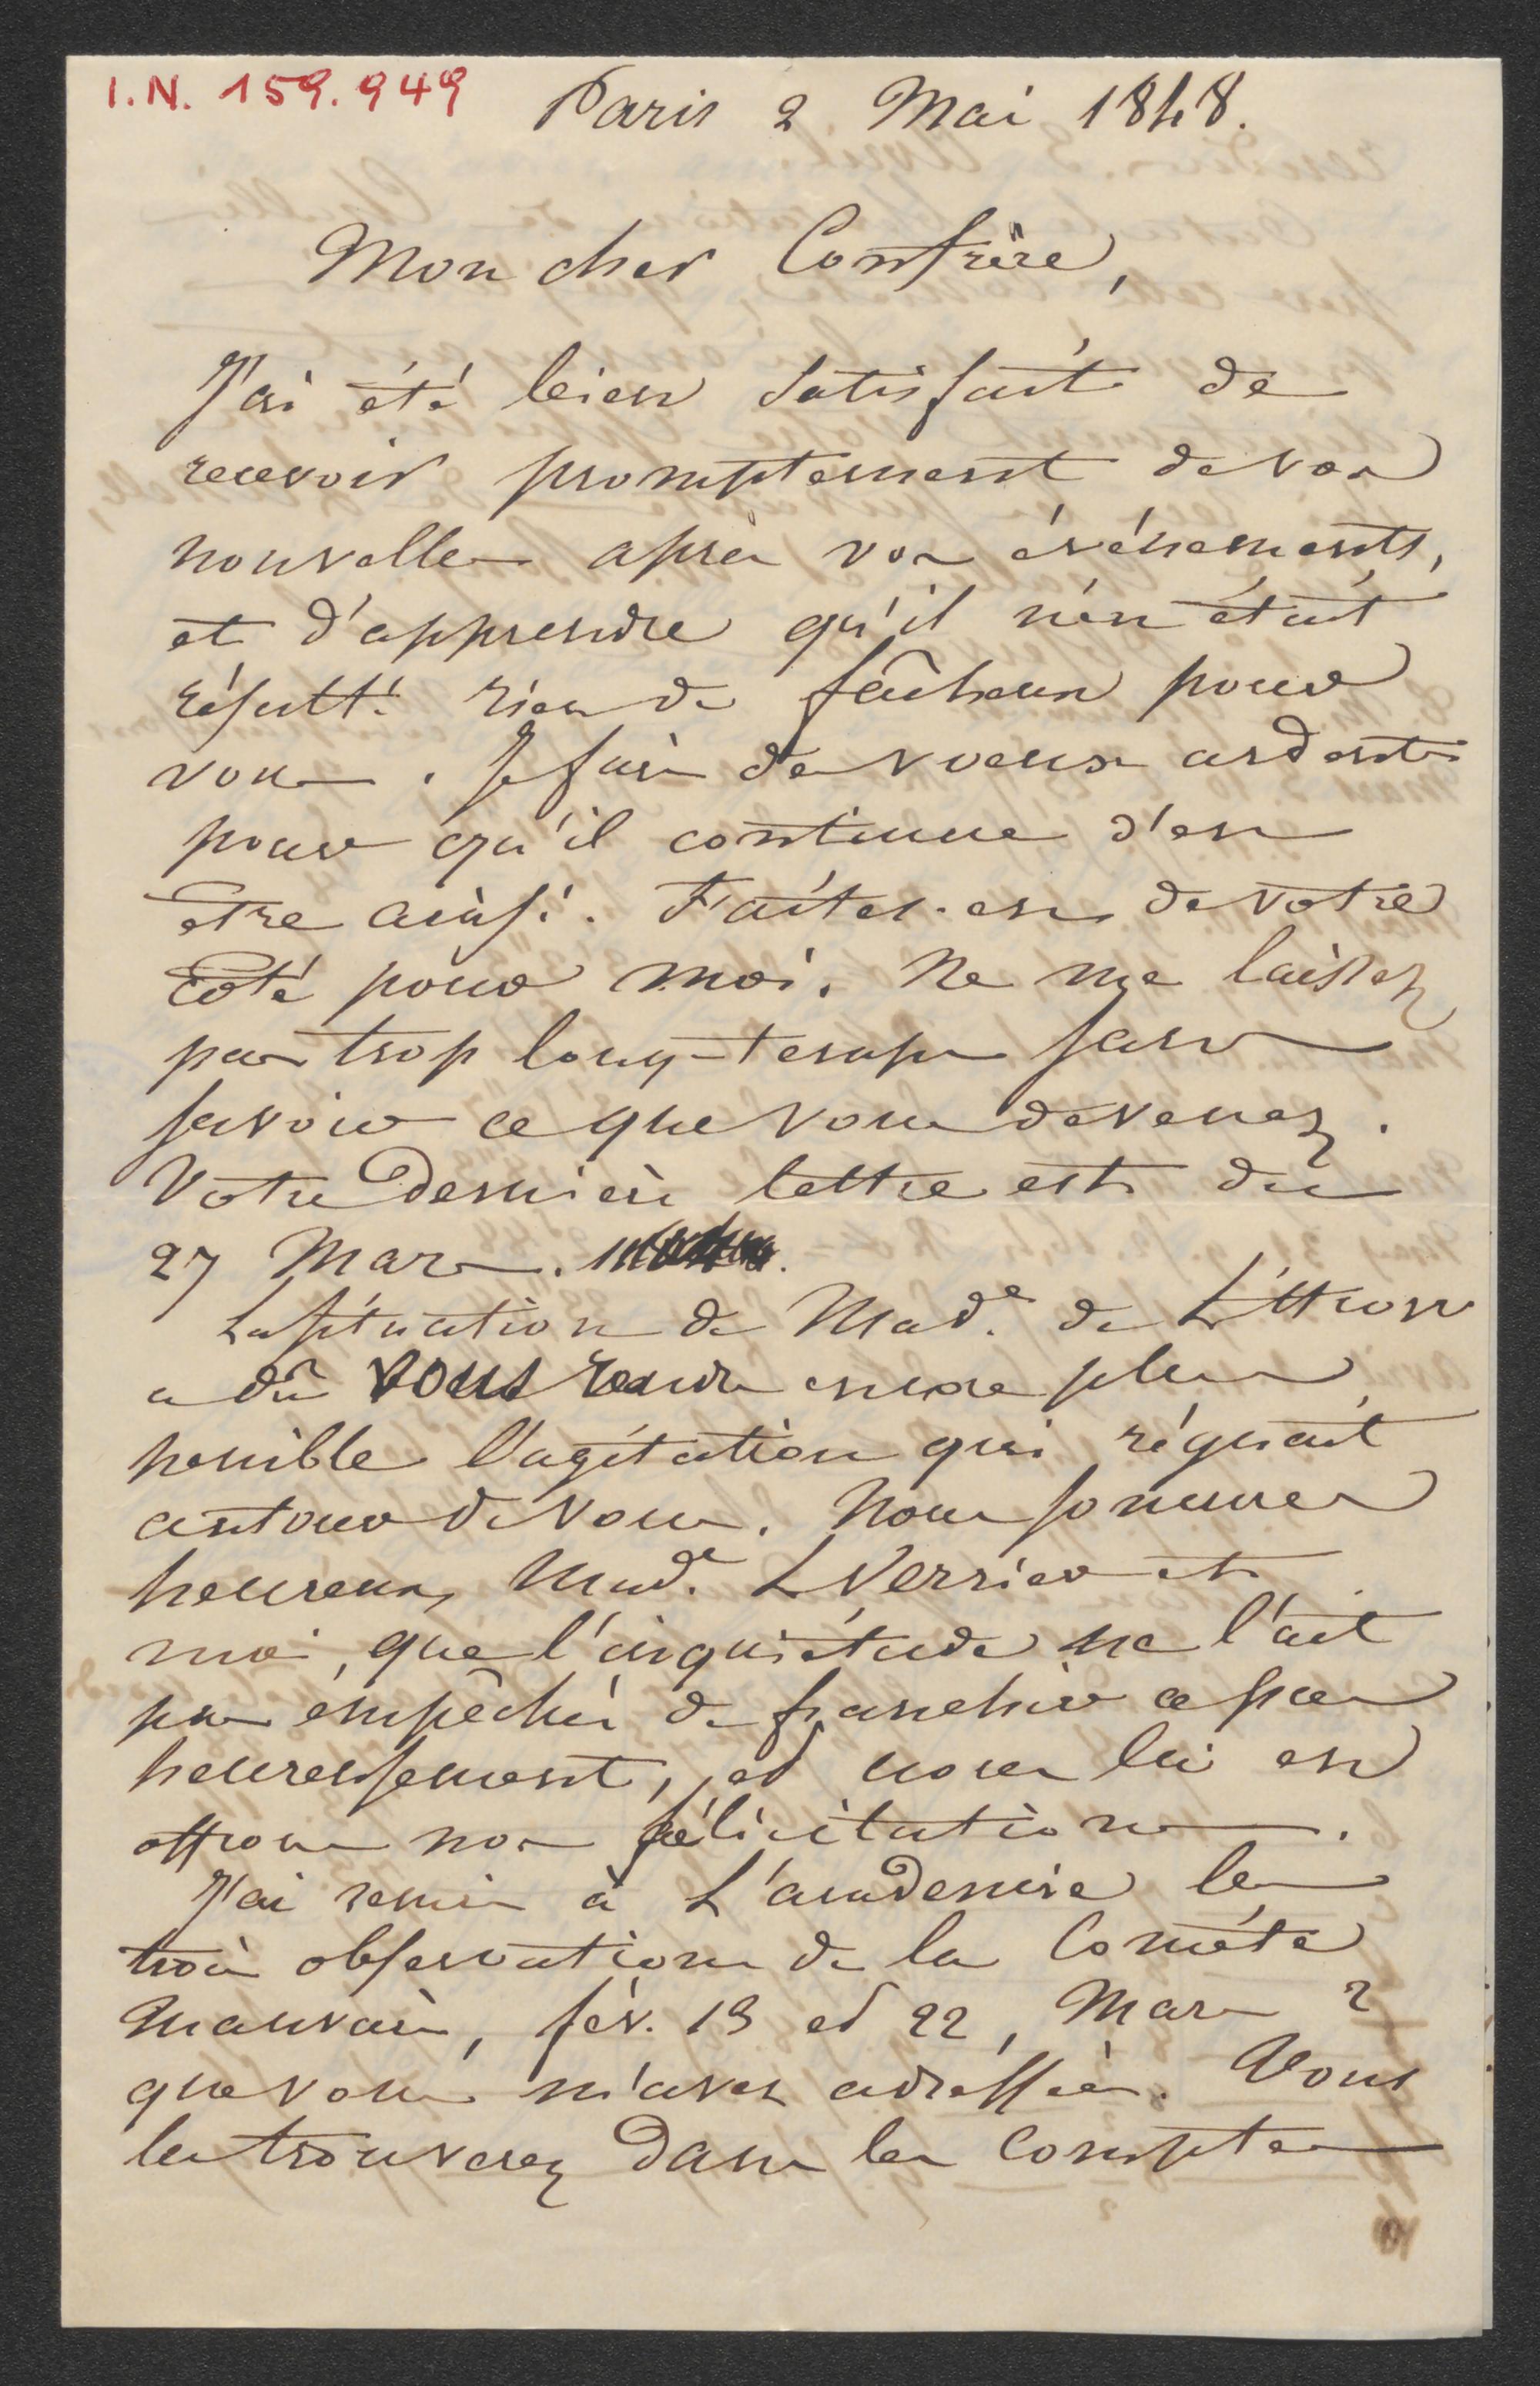 I.N. 159.949
Paris 2 Mai 1848.
Mon cher Confrère,
J'ai été bien satisfait de
recevoir promptement de vos
nouvelles après vos événements,
et d'apprendre qu'il n'en était
résulté rien de fâcheux pour
vous. Je fais de voeux ardents
pour qu'il continue d'en
être ainsi. Faites-en de votre
côté pour moi. Ne me laissez
pas trop long-temps sans
savoir ce que vous devenez.
Votre dernière lettre est du
27 Mars.
La situation de Mad.e de Littrow
a dû vous rendre encore plus
penible l'agitation qui régnait
autour de vous. Nous sommes
heureux, Mad.e L Verrier et
moi, que l'inquiétude ne l'ait
pas empêchée de franchir ce pas
heureusement, et nous lui en
offrons nos félicitations.
J'ai remis à L'academie les
trois observations de la Cométe
Mauvais, fév. 19 et 22, Mars 2
que vous m'avez adressées. Vous
les trouverez dans les Comptes